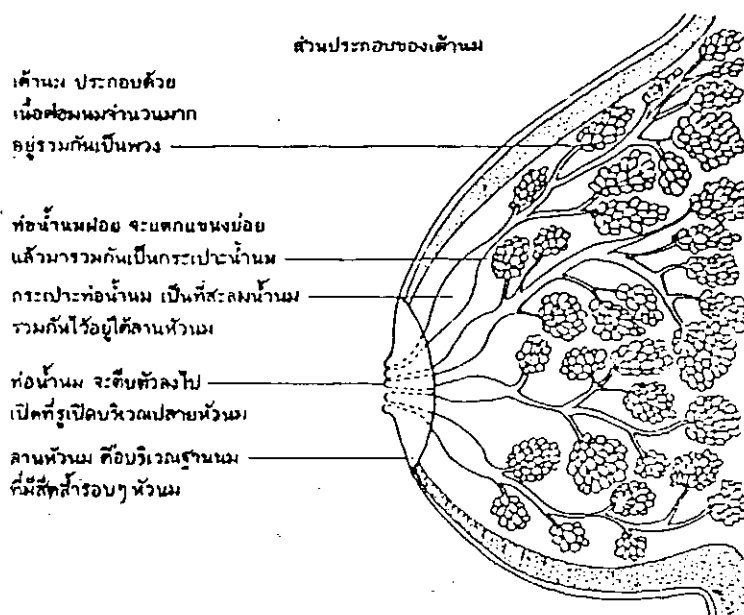 ส่วนประกอบของเต้านม
เต้านม ประกอบด้วย
เนื้อต่อมนมจำนวนมาก
อยู่รวมกันเป็นพวง
ท่อน้ำนมฝอย จะแตกแขนงย่อย
แล้วมารวมกันเป็นกระเปาะน้ำนม
กระเปาะท่อน้ำนม เป็นที่สะสมน้ำนม
รวมกันไว้อยู่ใต้ลานหัวนม
ท่อน้ำนม จะตีบตัวลงไป
เปิดที่รูเปิดบริเวณปลายหัวนม
ลานหัวนม คือบริเวณฐานนม
ที่มีสีคล้ำรอบๆ หัวนม